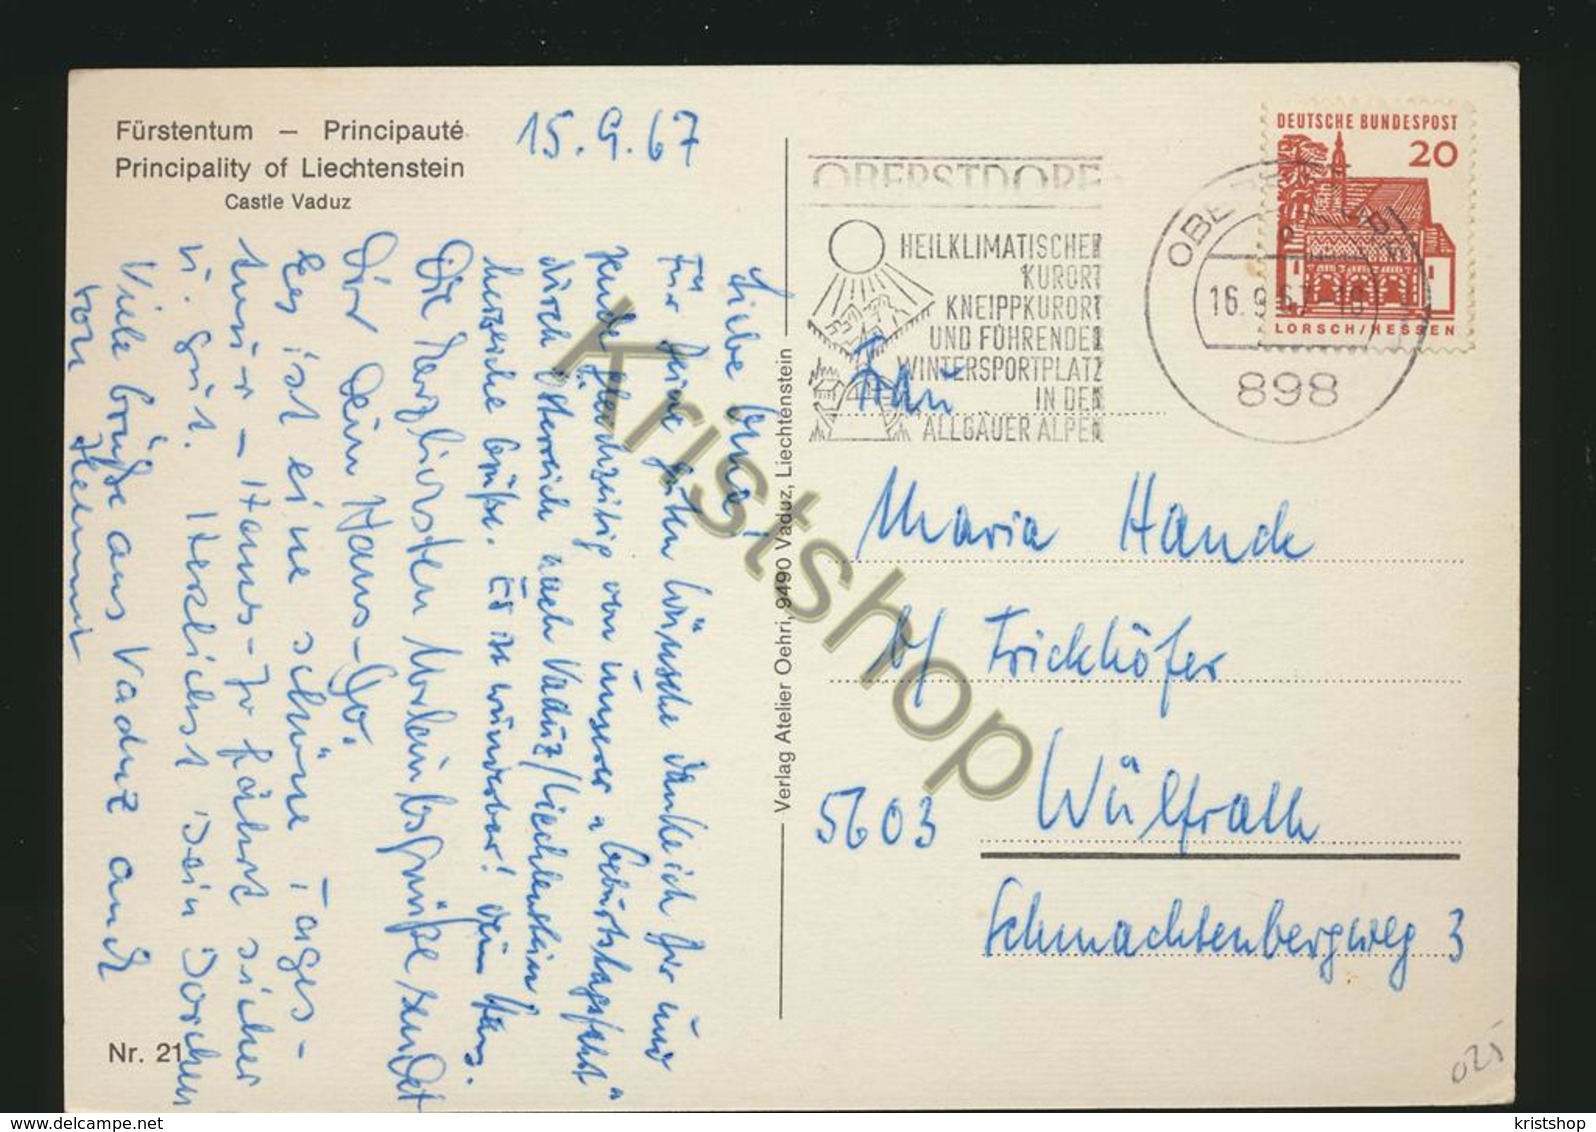 Fürstentum – Principauté
Principality of Liechtenstein
Castle Vaduz
15.9.67
Liebe Oma!
Für Deine guten Wünsche danke ich Dir und
sende gleichzeitig von unserer „Geburtstagsfahrt“
durch Österreich nach Vaduz/Liechtenstein
herzliche Grüße. Es ist wunderbar! Dein Hans.
Die herzlichsten Urlaubsgrüße sendet
Dir Dein Hans-Jo.
Es ist eine schöne Tages-
tour - Hans-Jo fährt sicher
u. gut. Herzlichst Dein Dorchen
Viele Grüße aus Vaduz auch
von Helmut
Nr. 21
Verlag Atelier Oehri, 9490 Vaduz, Liechtenstein
OBERSTDORF
HEILKLIMATISCHER
KURORT
KNEIPPKURORT
UND FÜHRENDER
WINTERSPORTPLATZ
IN DEN
ALLGÄUER ALPEN
OBERSTDORF
16.9.67-18
898
DEUTSCHE BUNDESPOST
20
LORSCH/HESSEN
Frau
Maria Hande
b/ Frickhöfer
5603 Wülfrath
Schmachtenbergweg 3
025
Kristshop
www.delcampe.net
kristshop